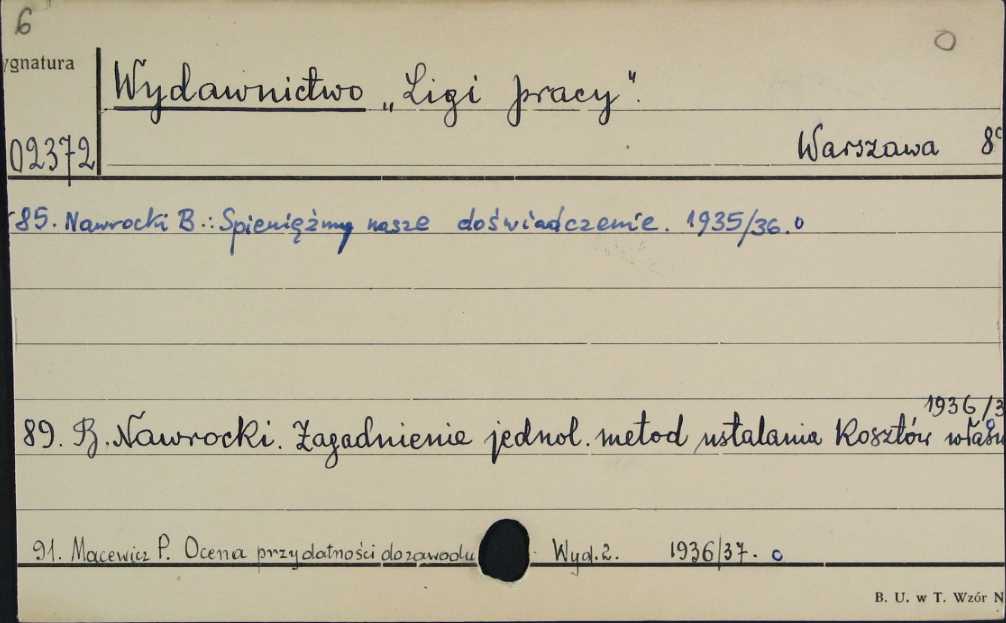 6
0
ygnatura
Wydawnictwo „Ligi pracy".
02372
Warszawa 8°
85. Nawrocki B.: Spieniężmy nasze doświadczenie. 1935/36. o
1936/3
89. B. Nawrocki. Zagadnienie jednol. metod ustalania Kosztów własn
91. Macewicz P. Ocena przydatności do zawodu Wyd. 2. 1936/37. o
B. U. w T. Wzór N